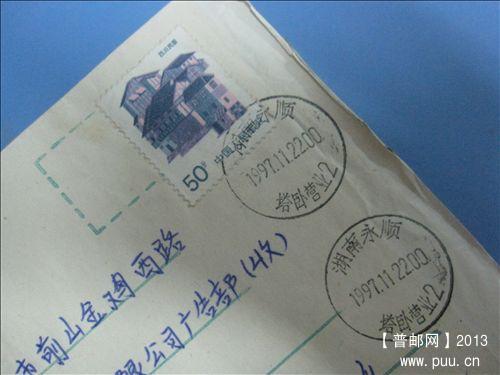 四川民居
50分 中国邮政
湖南永顺
1997.11.22.00
塔卧营业2
湖南永顺
1997.11.22.00
塔卧营业2
市前山金鸡西路
限公司广告部(收)
【普邮网】2013
www.puu.cn